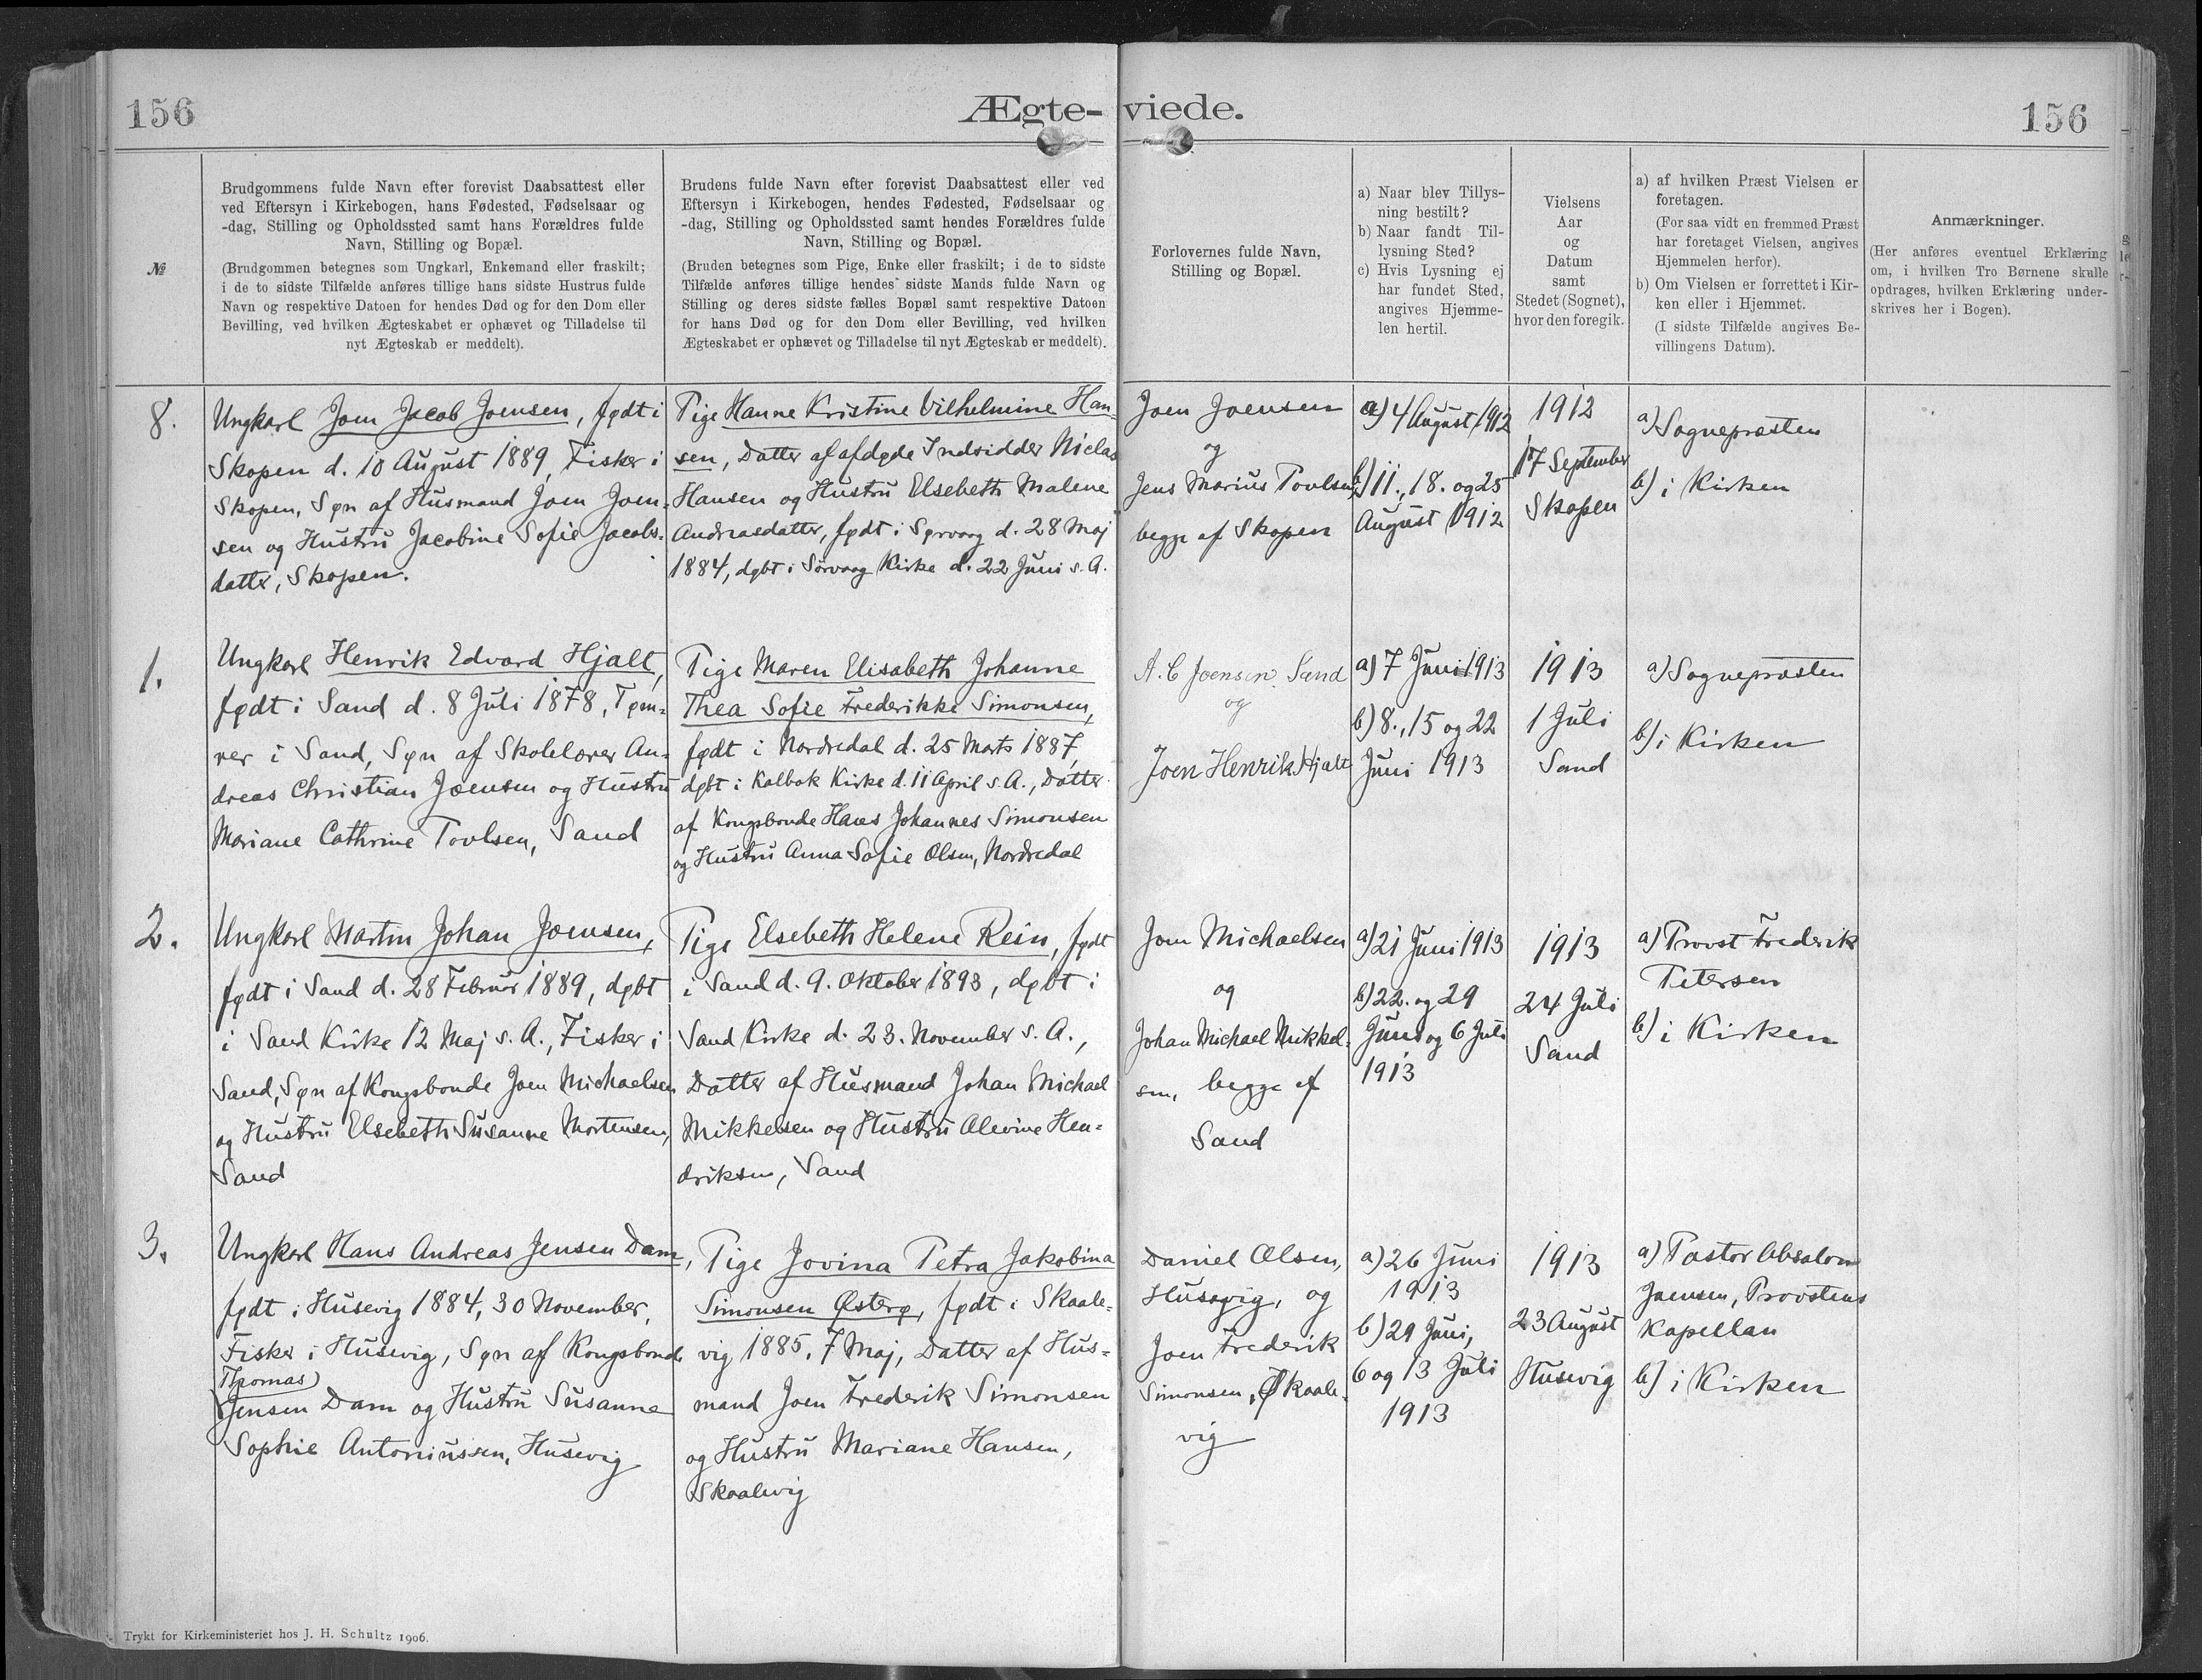 156
Ægte-viede.
156
№
Brudgommens fulde Navn efter forevist Daabsattest eller
ved Eftersyn i Kirkebogen, hans Fødested, Fødselsaar og
-dag, Stilling og Opholdssted samt hans Forældres fulde
Navn, Stilling og Bopæl.
(Brudgommen betegnes som Ungkarl, Enkemand eller fraskilt;
i de to sidste Tilfælde anføres tillige hans sidste Hustrus fulde
Navn og respektive Datoen for hendes Død og for den Dom eller
Bevilling, ved hvilken Ægteskabet er ophævet og Tilladelse til
nyt Ægteskab er meddelt).
Brudens fulde Navn efter forevist Daabsattest eller ved
Eftersyn i Kirkebogen, hendes Fødested, Fødselsaar og
-dag, Stilling og Opholdssted samt hendes Forældres fulde
Navn, Stilling og Bopæl.
(Bruden betegnes som Pige, Enke eller fraskilt; i de to sidste
Tilfælde anføres tillige hendes sidste Mands fulde Navn og
Stilling og deres sidste fælles Bopæl samt respektive Datoen
for hans Død og for den Dom eller Bevilling, ved hvilken
Ægteskabet er ophævet og Tilladelse til nyt Ægteskab er meddelt).
Forlovernes fulde Navn,
Stilling og Bopæl.
a) Naar blev Tillys-
ning bestilt?
b) Naar fandt Til-
lysning Sted?
c) Hvis Lysning ej
har fundet Sted,
angives Hjemme-
len hertil.
Vielsens
Aar
og
Datum
samt
Stedet (Sognet),
hvor den foregik.
a) af hvilken Præst Vielsen er
foretagen.
(For saa vidt en fremmed Præst
har foretaget Vielsen, angives
Hjemmelen herfor).
b) Om Vielsen er forrettet i Kir-
ken eller i Hjemmet.
(I sidste Tilfælde angives Be-
villingens Datum).
Anmærkninger.
(Her anføres eventuel Erklæring
om, i hvilken Tro Børnene skulle
opdrages, hvilken Erklæring under-
skrives her i Bogen).
8.
Ungkarl Joen Jacob Joensen, født i
Skopen d. 10 August 1889, Fisker i
Skopen, Søn af Husmand Joen Joen-
sen og Hustru Jacobine Sofie Jacobs-
datter, Skopen.
Pige Hanne Kristine Vilhelmine Han-
sen, Datter af afdøde Indsidder Niclas
Hansen og Hustru Elsebeth Malene
Andreasdatter, født i Sørvaag d. 28 Maj
1884, døbt i Sørvaag Kirke d. 22 Juni s. A.
Joen Joensen
og
Jens Marius Poulsen,
begge af Skopen
a) 4 August 1912
b) 11., 18. og 25
August 1912
1912
17 September
Skopen
a) Sognepræsten
b) i Kirken
1.
Ungkarl Henrik Edvard Hjalt,
født i Sand d. 8 Juli 1878, Tøm-
rer i Sand, Søn af Skolelærer An-
dreas Christian Joensen og Hustru
Mariane Cathrine Poulsen, Sand
Pige Maren Elisabeth Johanne
Thea Sofie Frederikke Simonsen,
født i Nordredal d. 25 Marts 1887,
døbt i Kalbak Kirke d. 11 April s. A., Datter
af Kongsbonde Hans Johannes Simonsen
og Hustru Anna Sofie Olsen, Nordredal
A. C Joensen Sand
og
Joen Henrik Hjalt
a) 7 Juni 1913
b) 8., 15 og 22
Juni 1913
1913
1 Juli
Sand
a) Sognepræsten
b) i Kirken
2.
Ungkarl Martin Johan Joensen,
født i Sand d. 28 Februar 1889, døbt
i Sand Kirke 12 Maj s. A., Fisker i
Sand, Søn af Kongsbonde Joen Michaelsen
og Hustru Elsebeth Susanne Mortensen,
Sand
Pige Elsebeth Helene Rein, født
i Sand d. 9. Oktober 1893, døbt i
Sand Kirke d. 23. November s. A.,
Datter af Husmand Johan Michael
Mikkelsen og Hustru Olevine Hen-
driksen, Sand
Joen Michaelsen
og
Johan Michael Mikkel-
sen, begge af
Sand
a) 21 Juni 1913
b) 22. og 29
Juni og 6 Juli
1913
1913
24 Juli
Sand
a) Provst Frederik
Petersen
b) i Kirken
3.
Ungkarl Hans Andreas Jensen Dam,
født i Husevig 1884, 30 November,
Fisker i Husevig, Søn af Kongsbonde
Thomas
Jensen Dam og Hustru Susanne
Sophie Antoniussen, Husevig
Pige Jovina Petra Jakobina
Simonsen Østerø, født i Skaale-
vig 1885, 7 Maj, Datter af Hus-
mand Joen Frederik Simonsen
og Hustru Mariane Hansen,
Skaalevig
Daniel Olsen,
Husevig, og
Joen Frederik
Simonsen, Skaale-
vig
a) 26 Juni
1913
b) 29 Juni,
6 og 13 Juli
1913
1913
23 August
Husevig
a) Pastor Absalon
Joensen, Provstens
Kapellan
b) i Kirken
Trykt for Kirkeministeriet hos J. H. Schultz 1906.